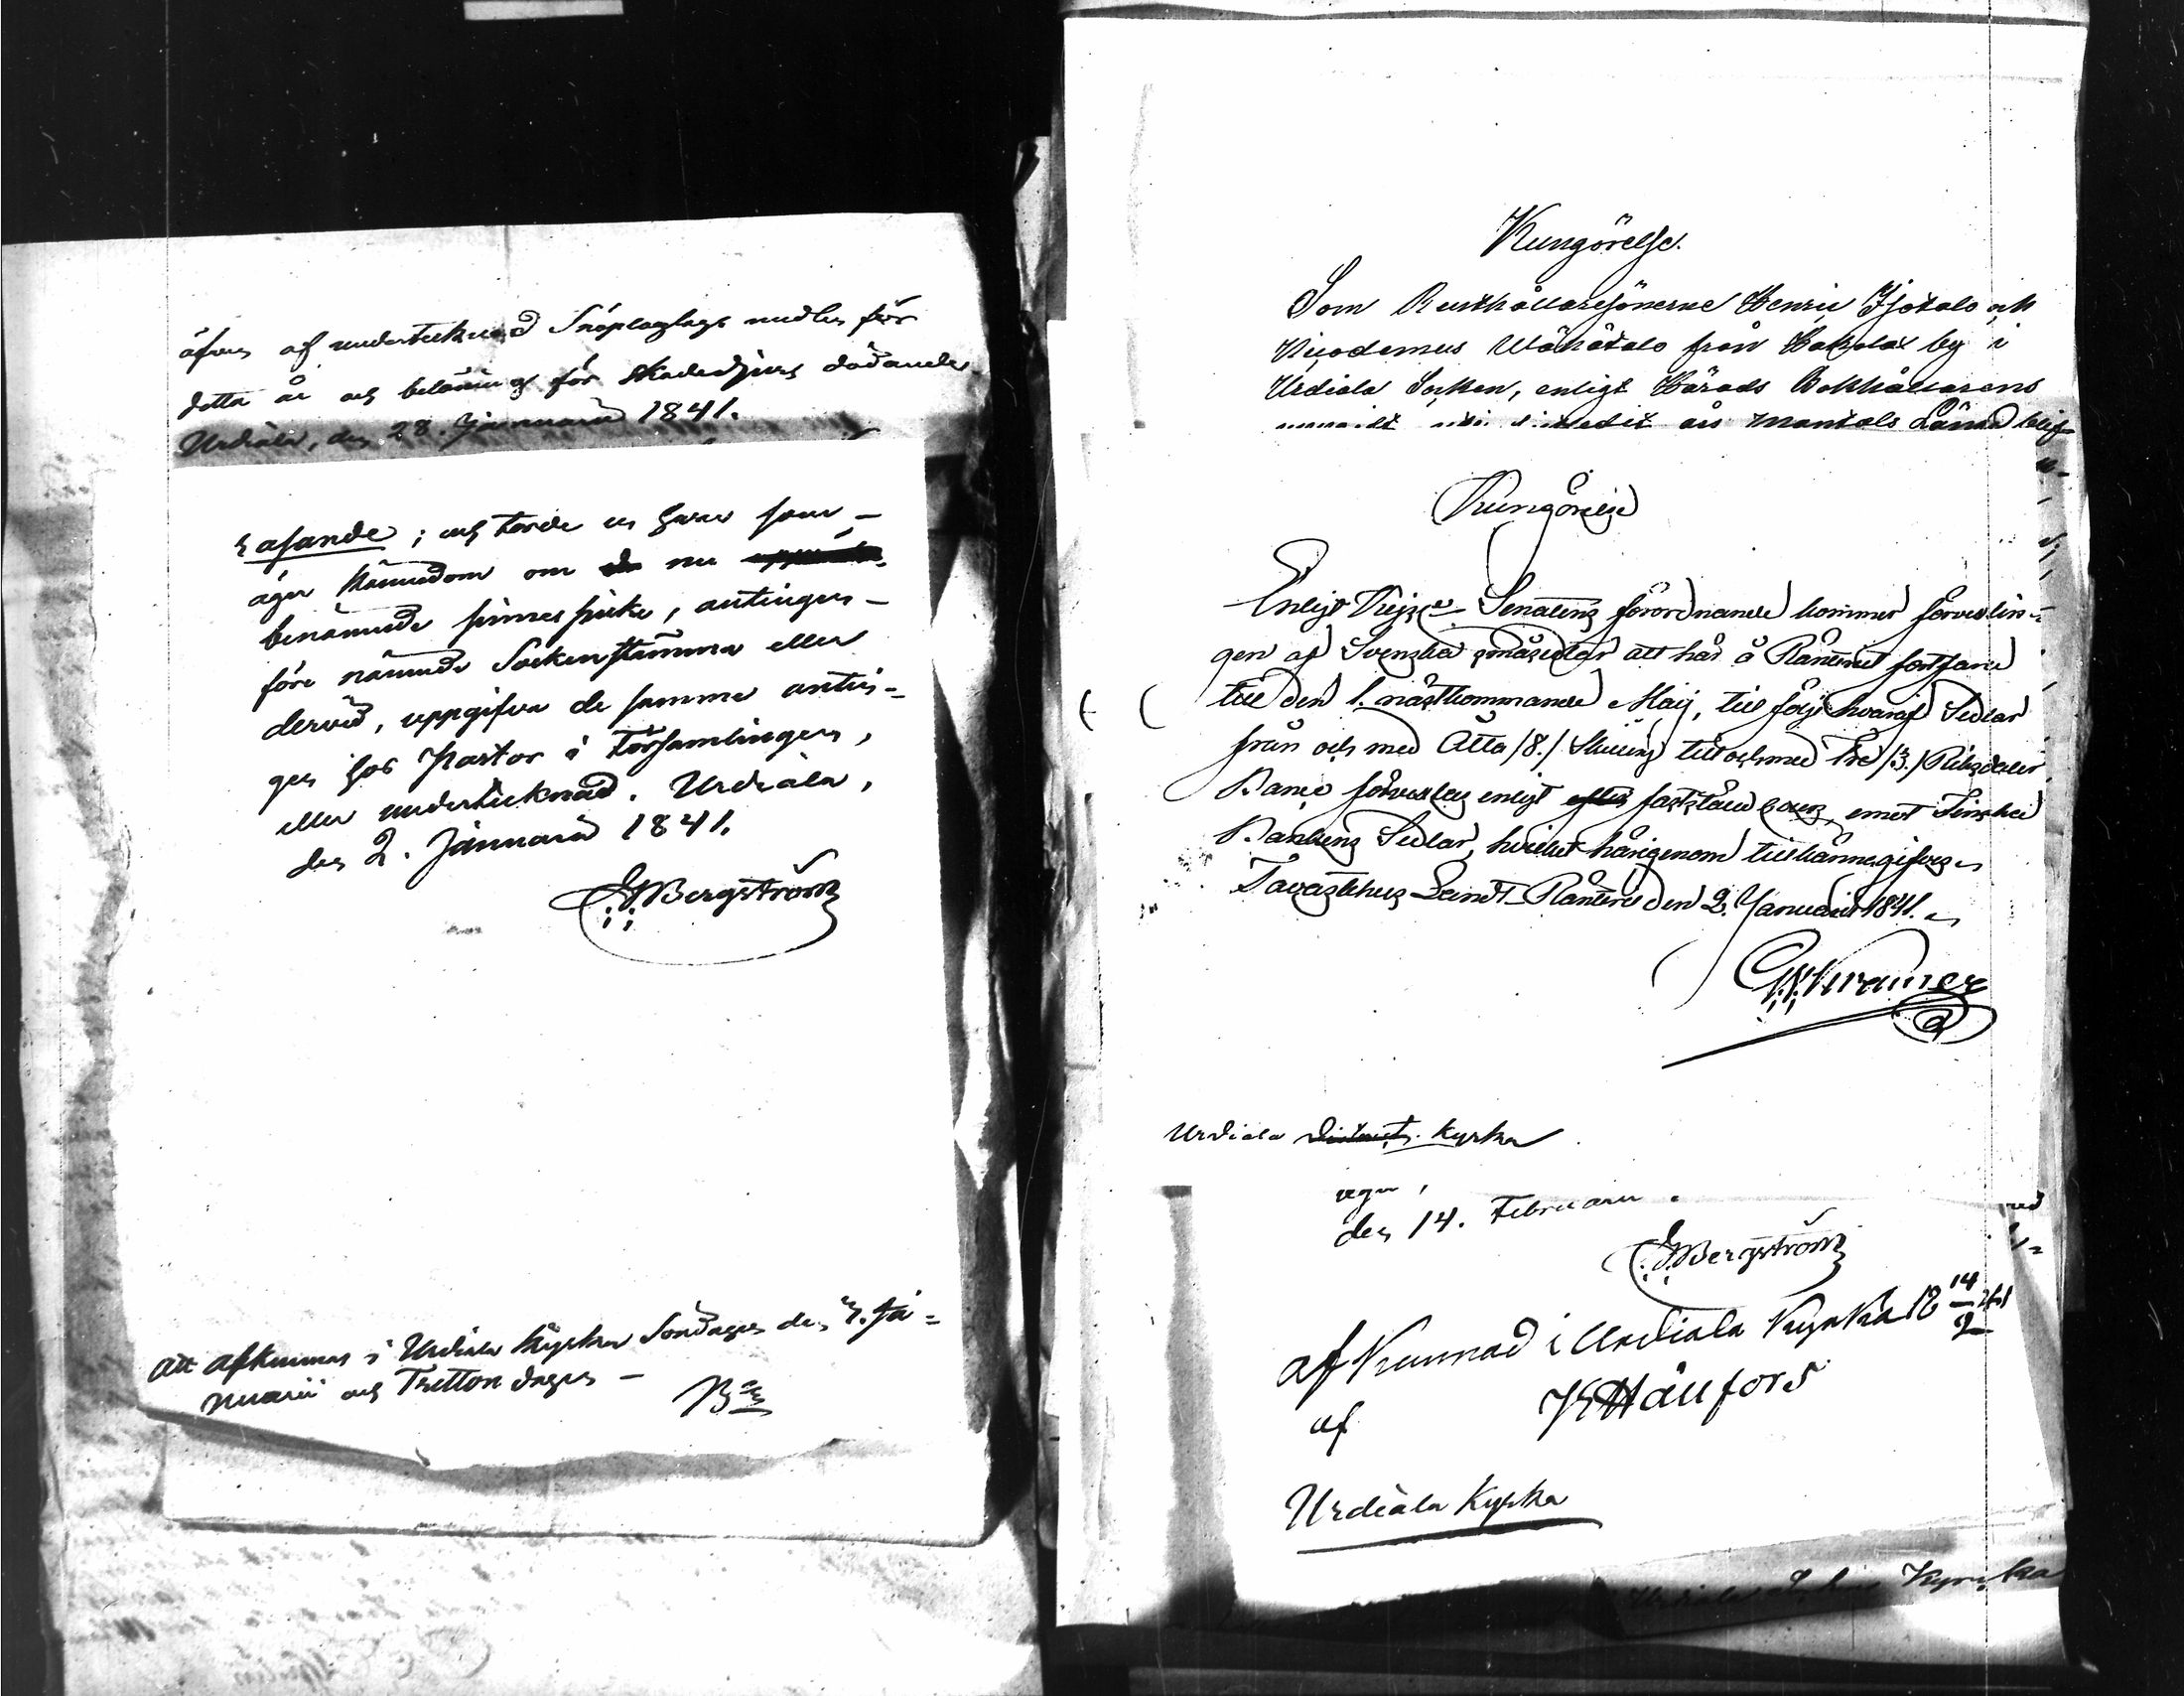 äfven af undertecknad Snöplogslags medlen för
detta år och belöning för skadedjurs dödande
Urdiala, den 28. Januarii 1841.
rasande; och torde en hvar som
äger kännedom om nu
benämnde sinnessjuke, antingen
före nämnde Sockenstämma eller
dervid, uppgifva de samma antin-
gen hos Pastor i Församlingen,
eller undertecknad. Urdiala,
den 2. Januarii 1841.
Bergström
Att afkunnas i Urdiala Kyrka Söndagen den 3. Ja-
nuarii och Tretton dagen
Kungörelse.
Som Rusthållaresönerne Henric Isotalo och
Nicodemus Wähätalo från by i
Urdiala Socken, enligt Härads Bokhållarens
års mantals Längd blif-
Kungörelse
Enligt Kejs. Senatens förordnande kommer förvexlin-
gen af Svenska småsedlar att här å Ränteriet fortfara
till den 1. nästkommande Maij, till följe hvaraf Sedlar
från och med Åtta /8./ Skilling till och med Tre /3./ Riksdaler
Banco förvexlas enligt faststäld cours, emot Finska
Bankens Sedlar, hvilket härigenom tillkännagifves
Tavastehus Landt Ränterie den 2. Januarii 1841.
Kramer
Urdiala Kyrka
den 14. Februarii.
Bergström
af Kunnad i Urdiala Kyrka 18 14/2 41
af K Hällfors
Urdiala Kyrka
Urdiala Kyrka